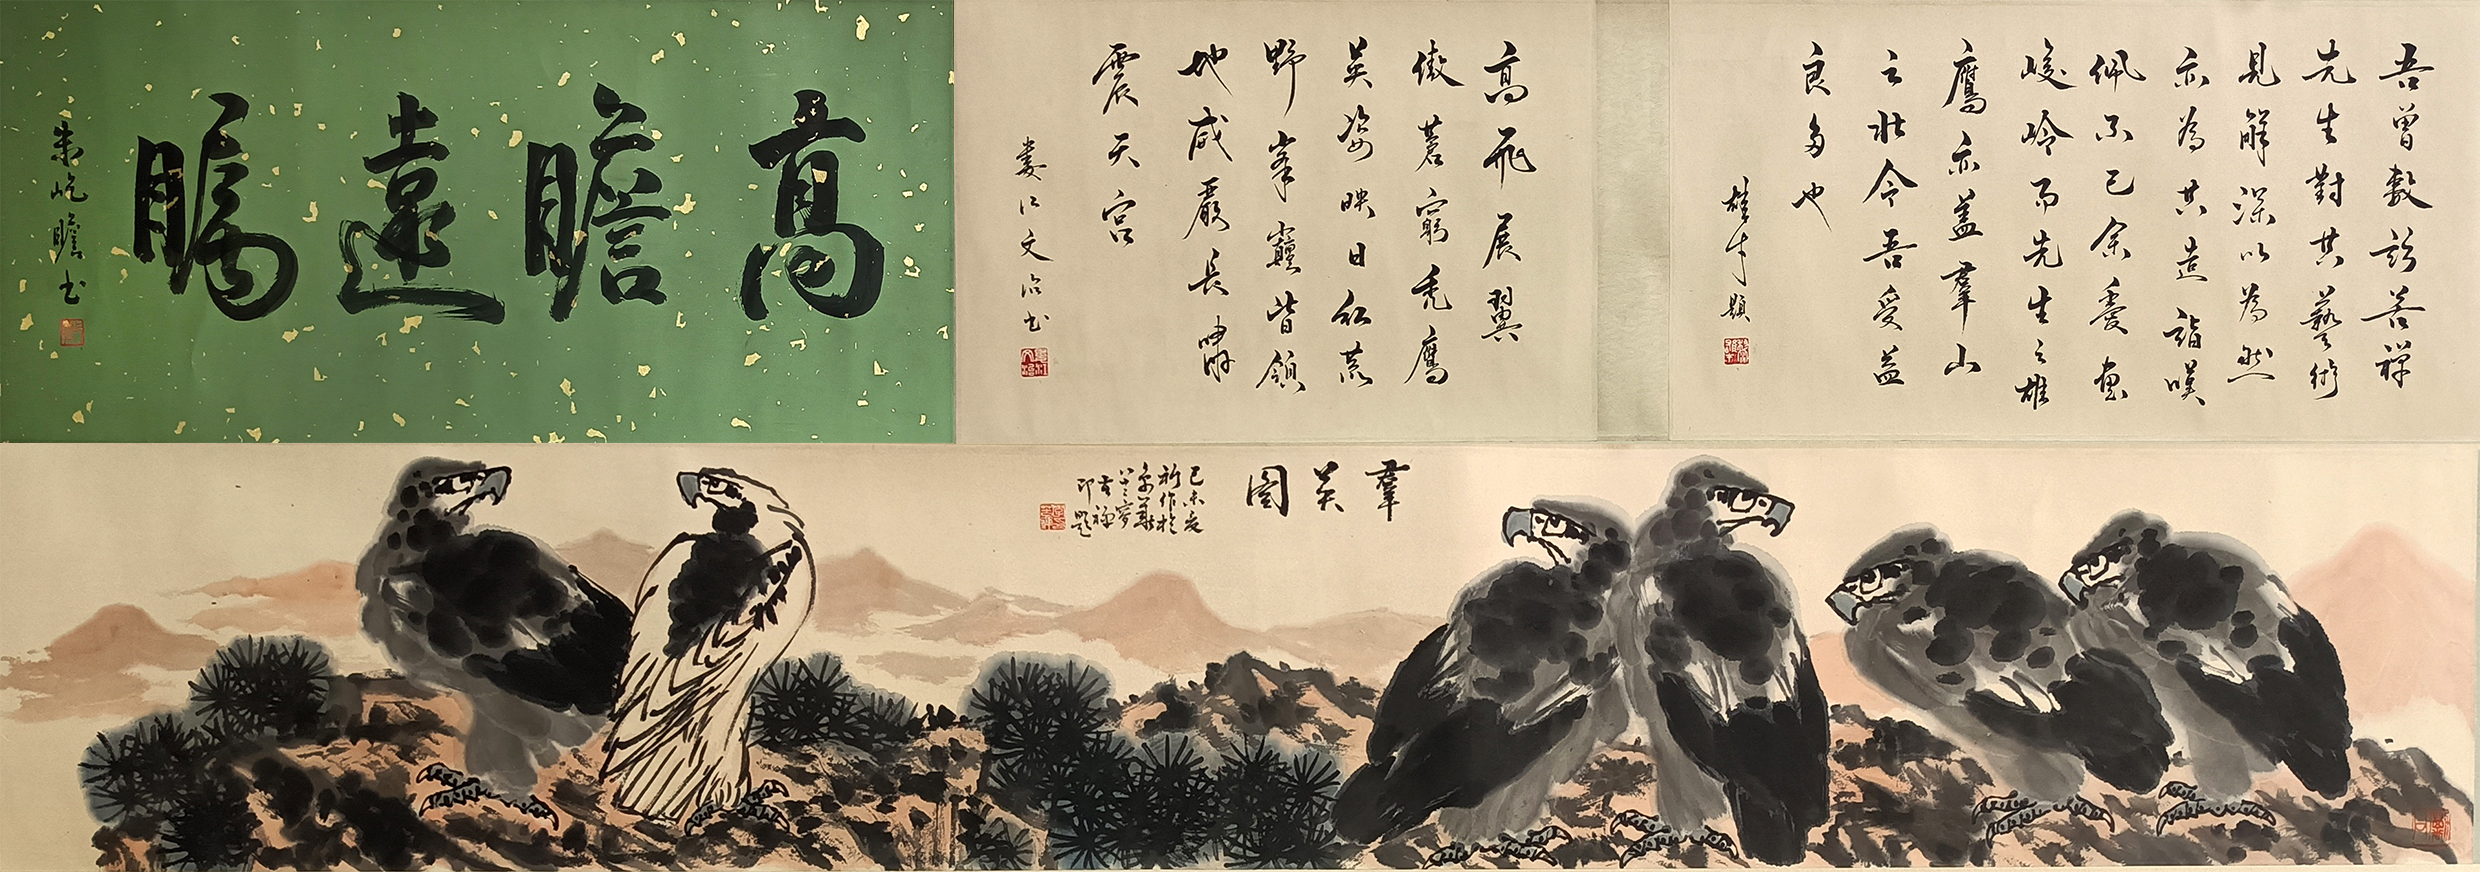 高瞻遠矚
朱屺瞻書
高飛展翼
傲蒼窮禿鷹
英姿映日紅荒
野峯巔皆領
地威嚴長嘯
震天宮
婁江文治書
吾曾數訪苦禪
先生對其藝術
見解深以為然
亦為其造詣嘆
佩不已余愛畫
峻岭而先生之雄
鷹亦蓋羣山
之壯今吾受益
良多也
雄才題
羣英圖
己未夜
新作於
京華
八十三叟
苦禪
印題